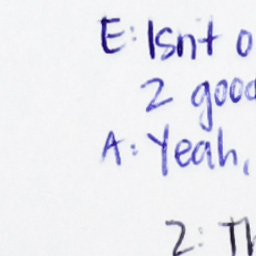 E: Isnt o
2 good
A: Yeah,
2: Th